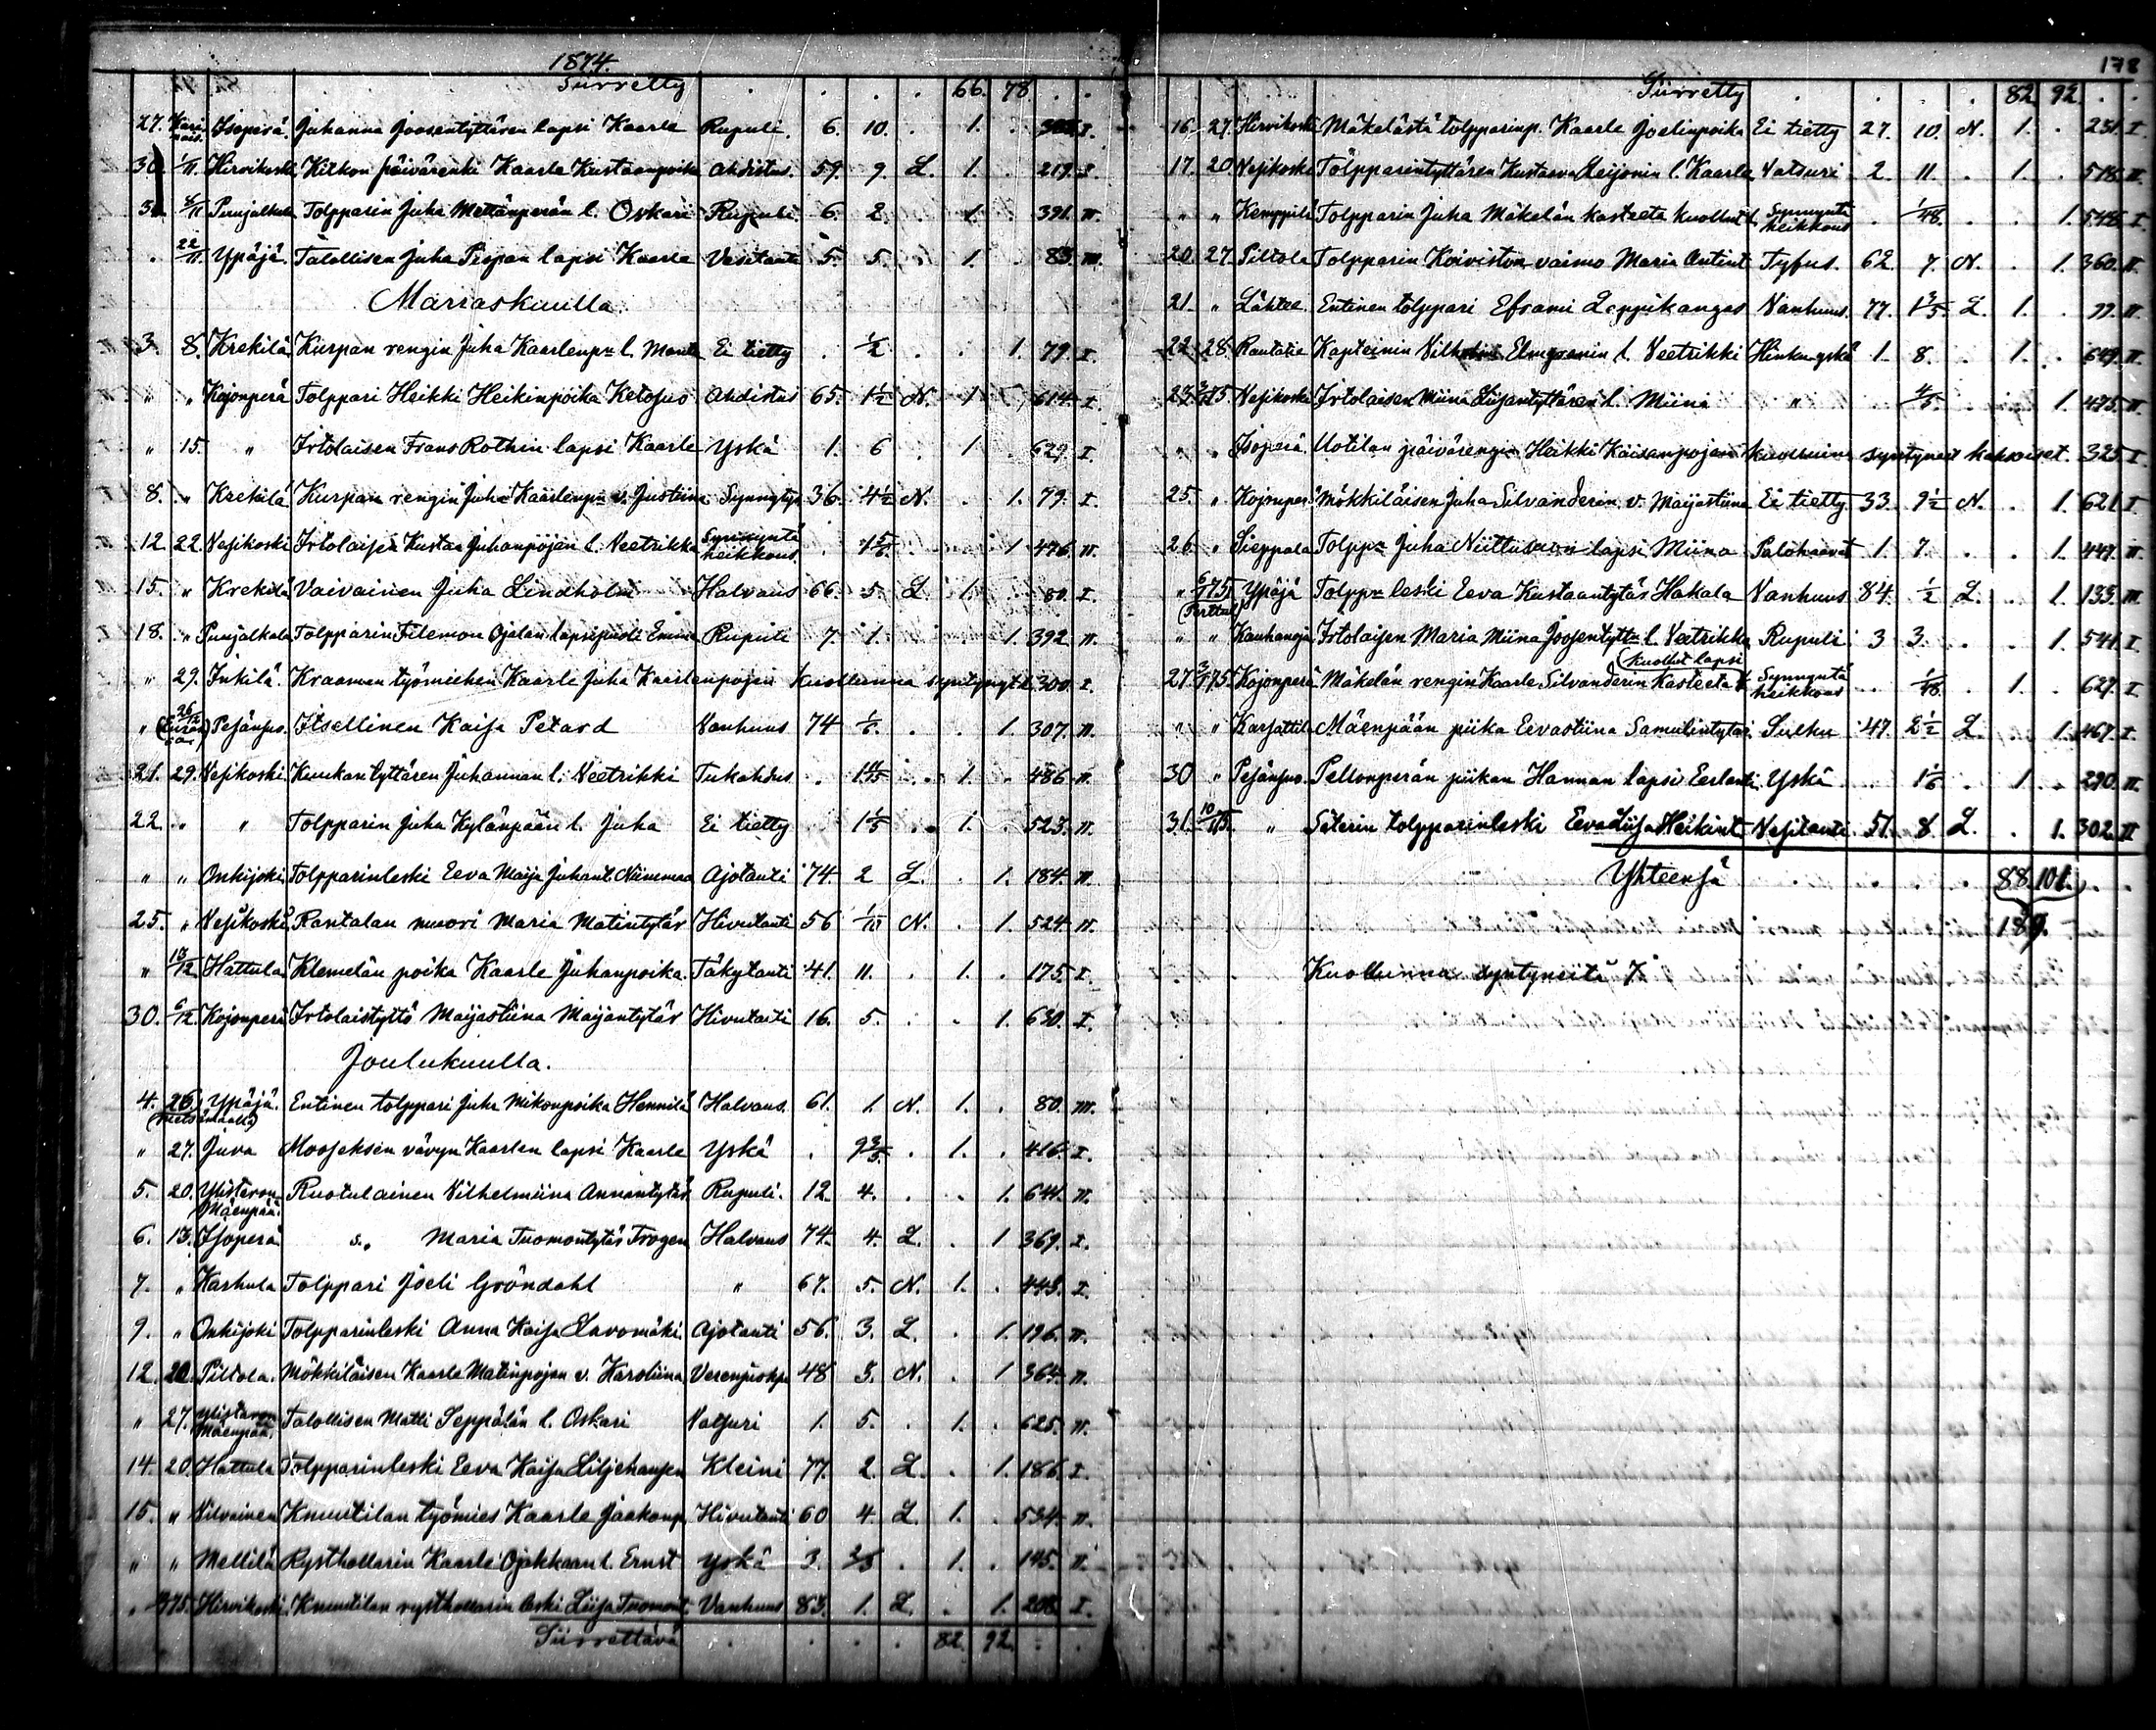 1874.
Siirretty . . . . 66. 78. . .
27. Isoperä. Juhanna Joosentyttären lapsi Kaarle Rupuli. 6. 10. . 1. . I.
30. 1/11. Hirvikoski Kitkon päivärenki Kaarle Kustaanpoika Ahdistus. 59. 9. L. 1. . 219. I.
31. 8/11 Punjalkula Tolpparin Juha Mettänperän l. Oskari Rupuli 6. 2. . 1. . 391. III.
. 22/11. Ypäjä. Talollisen Juha Pispan lapsi Kaarle Vesitauti 5. 5. . 1. . 83. III.
Marraskuulla.
3. 8. Krekilä Kurpan rengin Juha Kaarlenp. l. Manta Ei tietty . 1/2 . . 1. 79. I.
" " Kojonperä Tolppari Heikki Heikinpoika Ketojuo Ahdistus 65. 1 1/2 N. 1. 614. I.
" 15. " Irtolaisen Frans Rothin lapsi Kaarle Yskä 1. 6 . 1. . 629. I.
8. " Krekilä Kurpan rengin Juha Kaarlenp. v. Justiina Synnytys 36. 4 1/2 N. . 1. 79. I.
12. 22. Vesikoski Irtolaisen Kustaa Juhanpojan l. Veetrikka Synnyntä heikkous. . . . 1 476. II.
15. " Krekilä Vaivainen Juha Lindholm Halvaus 66. 5 L 1. . 80. I.
18. " Punjalkula Tolpparin Filemon Ojalan lapsipuoli Emma Rupuli 7. 1. . . 1. 392 III.
" 29. Inkilä. Kraamen työmiehen Kaarle Juha Kaarlenpojan kuolleena syntynyt l. 300. I.
" 26/12 Pejänsuo. Itsellinen Kaisa Petard Vanhuus 74 1/5. . . 1. 307. II.
21. 29. Vesikoski Kuukantyttären Juhannan l. Veetrikki Tukahdus . . 1. . 486 II.
22. " " Tolpparin Juha Kylänpään l. Juha Ei tietty . 1/5 . 1. . 523. II.
" " Onkijoki Tolpparinleski Eeva Maija Juhant. Niinimaa Ajotauti 74. 2 L. . 1. 184. II.
25. " Vesikoski Rantalan muori Maria Matintytär Hivutauti 56 1/10 N. . 1. 524. II.
" 13/12 Hattula Klemelän poika Kaarle Juhanpoika. Täkytauti 41. 11. . 1. . 175. I.
30. 6/12. Kojonperä Irtolaistyttö Maijastiina Maijantytär Hivutauti 16. 5. . . 1. 630. I.
Joulukuulla.
4. 26. Ypäjä. Entinen tolppari Juha Mikonpoika Hennilä Halvaus. 61. 1. N. 1. . 80. III.
" 27. Juva Mooseksen vävyn Kaarlen lapsi Kaarle Yskä . 9 3/5. . 1. . 416. I.
5. 20. Ylistaron Mäenpää. Ruotulainen Vilhelmiina Annantytär Rupuli. 12. 4. . . 1. 644. II.
6. 13. Isoperä s." Maria Tuomontytär Trogen Halvaus 74. 4. L. . 1 369. I.
7. " Karhula Tolppari Joeli Gröndahl " 67. 5. N. 1. . 443. I.
9. " Onkijoki Tolpparinleski Anna Kaisa Savomäki. Ajotauti 56. 3. L. . 1. 196. II.
12. 20. Piltola. Mökkiläisen Kaarle Matinpojan v. Karoliina Verenjuoks. 48 3. N. . 1 364. II.
" 27. Ylistaron Mäenpää. Talollisen Matti Seppälän l. Oskari Vatsuri 1. 5. . 1. . 625. II.
14. 20. Hattula Tolpparinleski Eeva Kaisa Liljehansen Kleini 77. 2. L. . 1. 186. I.
15. " Vilvainen Knuutilan työmies Kaarle Jaakonp. Hivutauti 60 4. L. 1. . 534. II.
" " Mellilä Rysthollarin Kaarle Ojakkaan l. Ernst Yskä 3. 2/3 . 1. . 145. II.
" 3/1 75. Hirvikoski. Knuutilan rysthollarin leski Liisa Tuomont. Vanhuus 83. 1. L. . 1. 208. I.
Siirrettävä . . . . 82. 92. . .
178
Siirretty . . . . 82. 92. . .
16. 27. Hirvikoski Mäkelästä tolpparinp. Kaarle Joelinpoika Ei tietty 27. 10. N. 1. . 231. I.
17. 20 Vesikoski Tolpparintyttären Kustaava Leijonin l. Kaarle Vatsuri 2. 11. . 1. . 518. II.
" " Kemppilä Tolpparin Juha Mäkelän kasteeta kuollut l. Synnyntä heikkous . 1/48. . . 1. 548. I.
20. 27. Piltola Tolpparin Koiviston vaimo Maria Antint. Tyfus. 62. 7. N. . 1. 360. II.
21. " Lähtee. Entinen tolppari Efraimi Leppikangas Vanhuus. 77. 1 3/5 L. 1. . 99. II.
22. 28. Rautatie Kapteinin Vilhelmi Elmgrenin l. Veetrikki Hinkuyskä 1. 8. . 1. . 649. II.
23. 3/1 75 Vesikoski Irtolaisen Miina Liisantyttären l. Miina " . 4/5. . . 1. 475. II.
" " Isoperä Uotilan päivärengin Heikki Kaisanpojan kuolleina syntyneet kaksoiset. 325. I
25. " Kojonperä Mökkiläisen Juha Silvanderin v. Maijastiina Ei tietty 33. 9 1/2 N. . 1. 621. I
26. " Sieppala Tolpp. Juha Niittusuon lapsi Miina Palohaavat 1 7. . . 1. 447. II.
" 6/1 75. Ypäjä Tolpp. leski Eeva Kustaantytär Hakala Vanhuus 84. 1/2 L. . 1. 133. III
" " Kauhanoja Irtolaisen Maria Miina Joosentytt. l. Veetrikka Rupuli 3 3. . . 1. 541. I.
27. 3/1 75. Kojonperä Mäkelän rengin Kaarle Silvanderin Kasteeta kuollut lapsi Synnyntä heikkous . 1/48. . 1. . 627. I.
" " Karjattila Mäenpään piika Eevastiina Samulintytär. Sulku 47. 2 1/2 L. . 1. 467. I.
30 " Pejänsuo. Pellonperän piikan Hannan lapsi Eerlanti Yskä . 1/6 . 1. . 290. II.
31. 10/1 75. " Säterin tolpparinleski Eeva Liisa Heikint. Vesitauti. 51. 8 L. . 1. 302. II
Yhteensä . . . . 88. 101. . .
189.
Kuolleena syntyneitä 7.